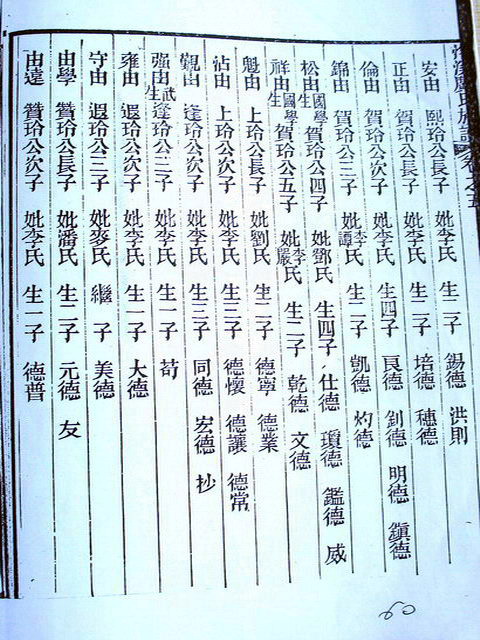 溪盧氏族譜 卷之五
安由 熙玲公長子 妣李氏 生二子 錫德 洪則
正由 賀玲公長子 妣李氏 生二子 培德 穗德
倫由 賀玲公次子 妣李氏 生四子 良德 釗德 明德 鎮德
錦由 賀玲公三子 妣李譚氏 生二子 凱德 灼德
松由國學生 賀玲公四子 妣鄧氏 生四子 仕德 瓊德 鑑德 威
祥由國學生 賀玲公五子 妣李嚴氏 生二子 乾德 文德
魁由 上玲公長子 妣劉氏 生二子 德寧 德業
沾由 上玲公次子 妣李氏 生三子 德懷 德讓 德常
觀由 逢玲公次子 妣李氏 生三子 同德 宏德 抄
强由武生 逢玲公三子 妣李氏 生一子 苟
雍由 遐玲公次子 妣李氏 生一子 大德
守由 遐玲公三子 妣麥氏 繼子 美德
由學 贊玲公長子 妣潘氏 生二子 元德 友
由遠 贊玲公次子 妣李氏 生一子 德普
60